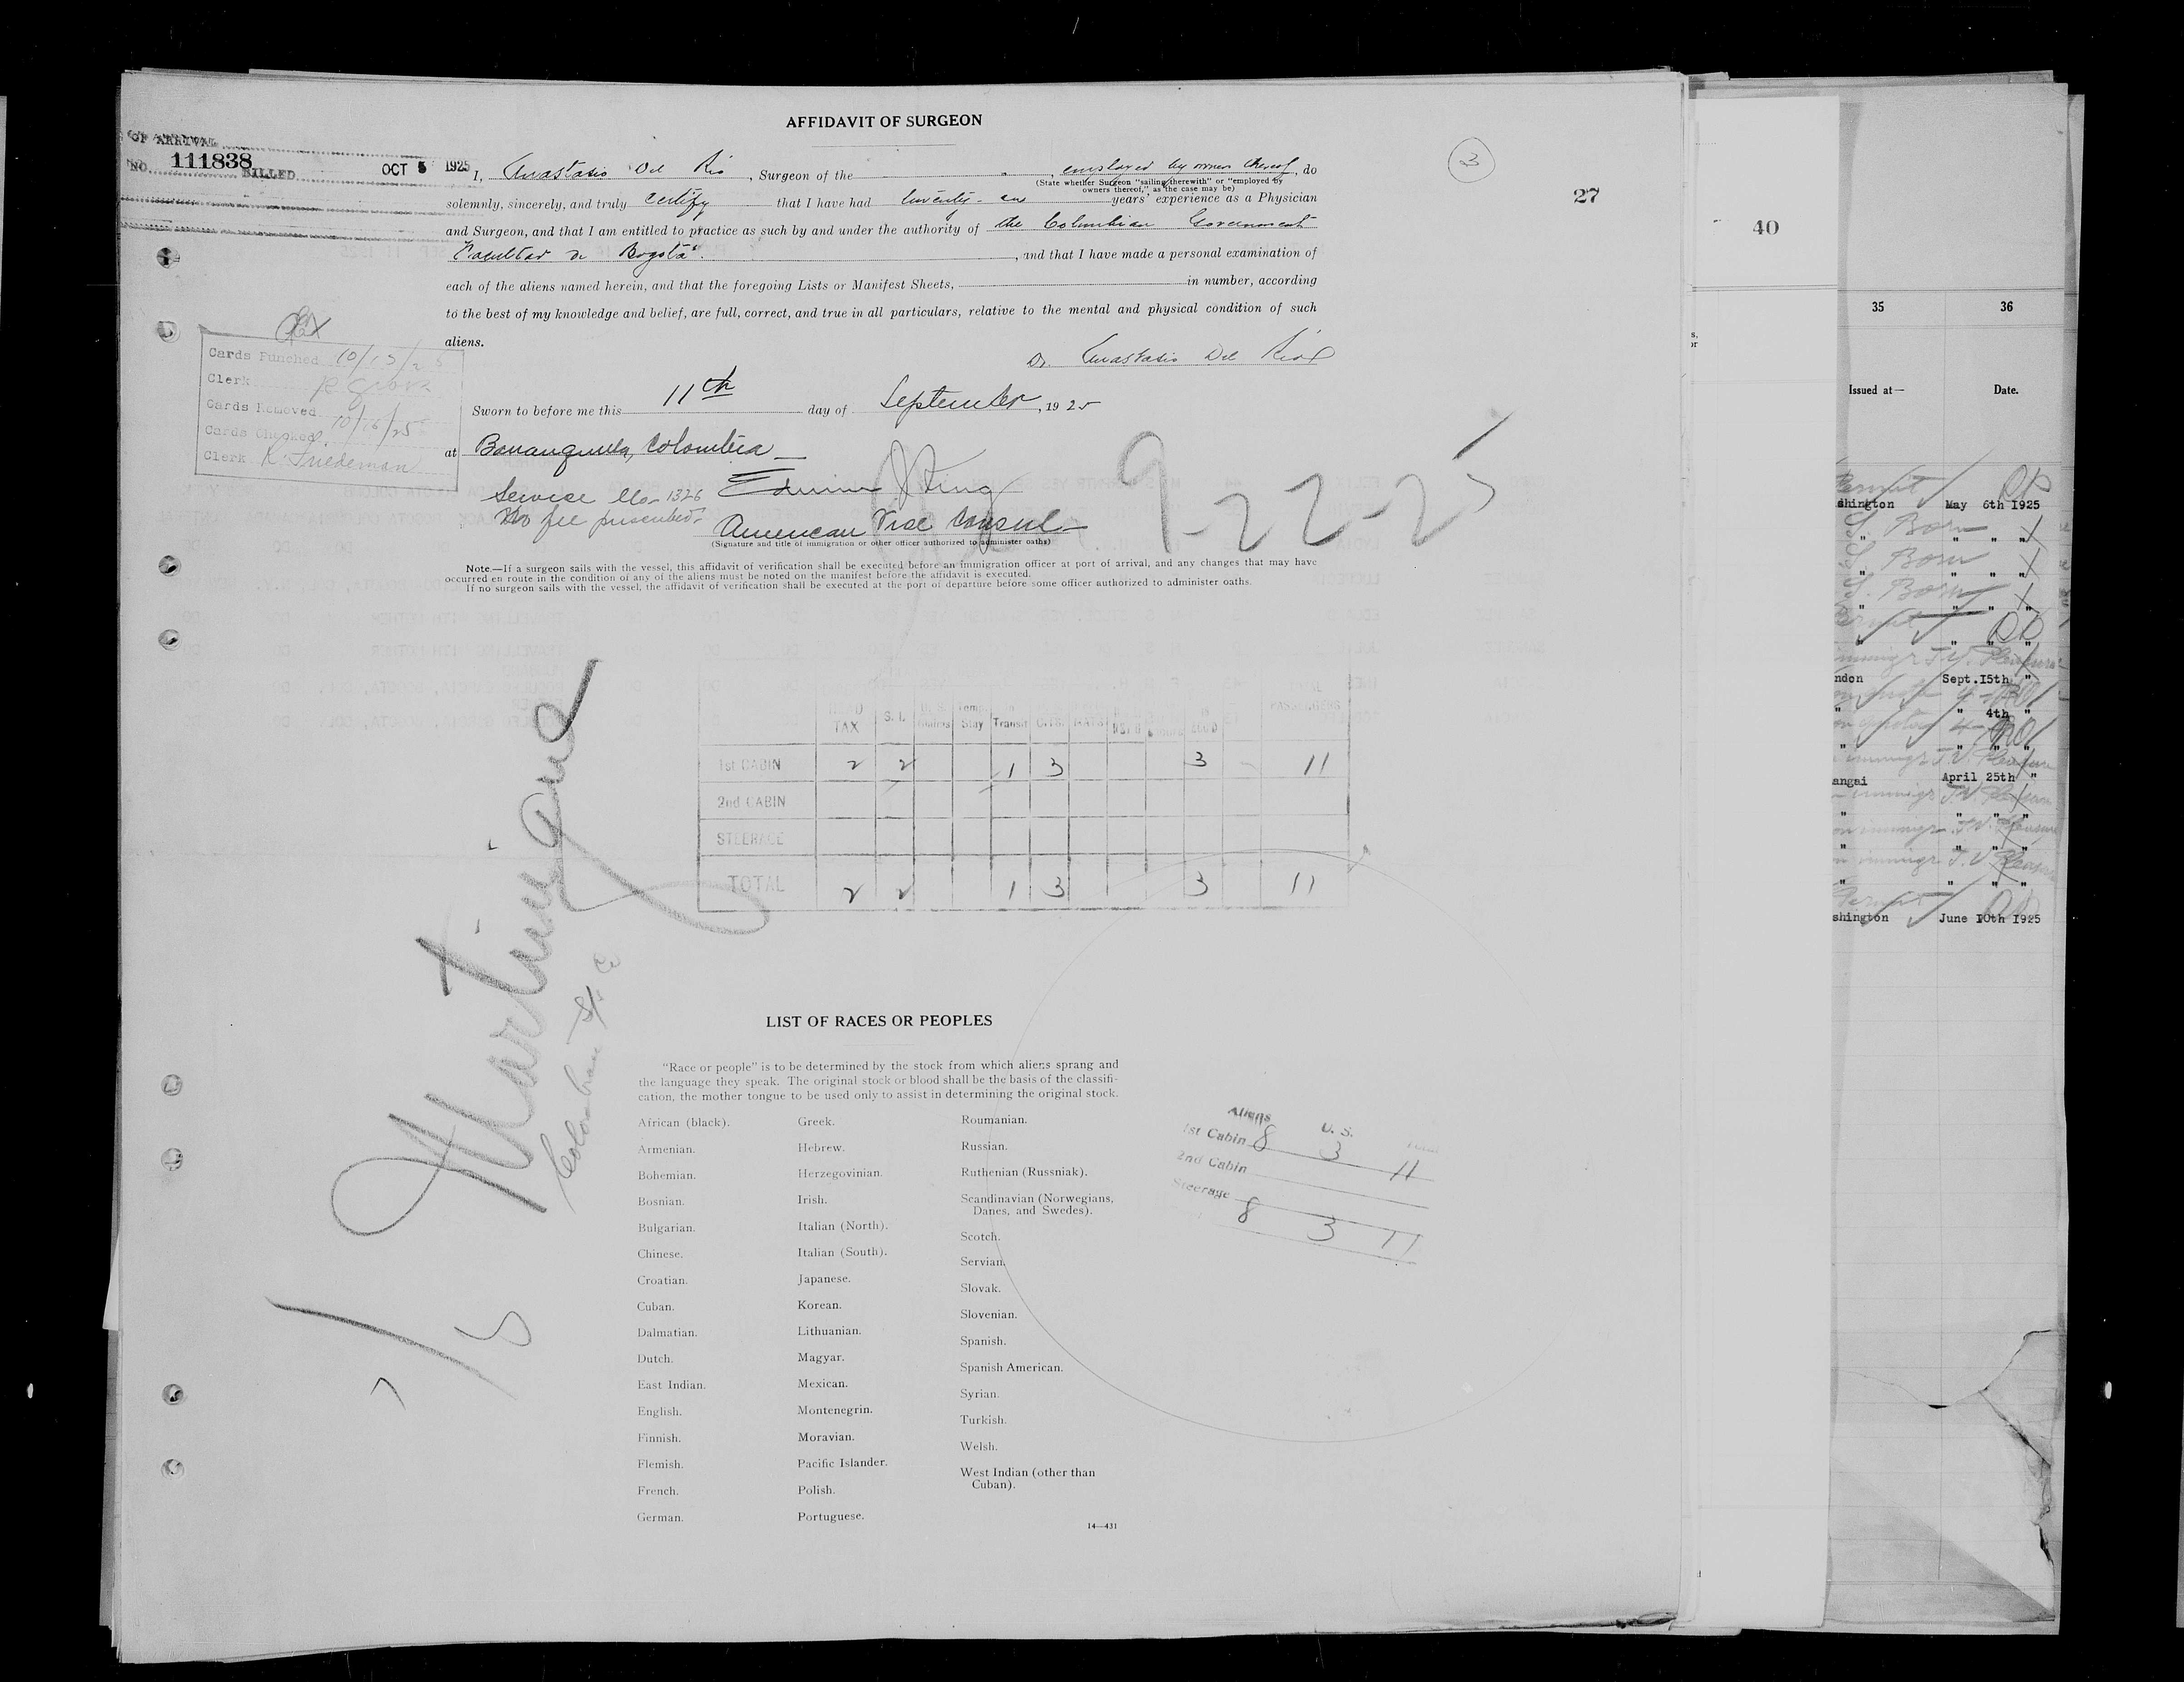 AFFIDAVIT OF SURGEON
OF ARRIVAL
NO. 111838 BILLED OCT 5 1925
3
27
40
I, Anastasio Del Rio, Surgeon of the employed by owners thereof, do
(State whether Surgeon "sailing therewith" or "employed by
owners thereof," as the case may be)
solemnly, sincerely, and truly certify that I have had twenty- years' experience as a Physician
and Surgeon, and that I am entitled to practice as such by and under the authority of the Colombian Government
Facultad de Bogotá. , and that I have made a personal examination of
each of the aliens named herein, and that the foregoing Lists or Manifest Sheets, in number, according
to the best of my knowledge and belief, are full, correct, and true in all particulars, relative to the mental and physical condition of such
aliens.
Dr Anastasio Del Rio
Cards Punched 10/15/25
Clerk
Cards Removed
Cards Checked 10/16/25
Clerk K. Friedeman
Sworn to before me this 11th day of September, 1925
at Barranquilla, Colombia
Service No 1326
No fee prescribed.
Edwin King
American Vice Consul
(Signature and title of immigration or other officer authorized to administer oaths)
9-22-25
Note.—If a surgeon sails with the vessel, this affidavit of verification shall be executed before an immigration officer at port of arrival, and any changes that may have
occurred en route in the condition of any of the aliens must be noted on the manifest before the affidavit is executed.
If no surgeon sails with the vessel, the affidavit of verification shall be executed at the port of departure before some officer authorized to administer oaths.
TAX S. I. Temp. Stay Transit CITS. PASSENGERS
1st CABIN 2 2 1 3 3 11
2nd CABIN
STEERAGE
TOTAL 2 2 1 3 3 11
Martinique
Colombian S/S Co
LIST OF RACES OR PEOPLES
"Race or people" is to be determined by the stock from which aliens sprang and
the language they speak. The original stock or blood shall be the basis of the classifi-
cation, the mother tongue to be used only to assist in determining the original stock.
African (black).
Armenian.
Bohemian.
Bosnian.
Bulgarian.
Chinese.
Croatian.
Cuban.
Dalmatian.
Dutch.
East Indian.
English.
Finnish.
Flemish.
French.
German.
Greek.
Hebrew.
Herzegovinian.
Irish.
Italian (North).
Italian (South).
Japanese.
Korean.
Lithuanian.
Magyar.
Mexican.
Montenegrin.
Moravian.
Pacific Islander.
Polish.
Portuguese.
Roumanian.
Russian.
Ruthenian (Russniak).
Scandinavian (Norwegians,
Danes, and Swedes).
Scotch.
Servian.
Slovak.
Slovenian.
Spanish.
Spanish American.
Syrian.
Turkish.
Welsh.
West Indian (other than
Cuban).
14—431
Aliens U. S. Total
1st Cabin 8 3 11
2nd Cabin
Steerage
8 3 11
35 36
Issued at— Date.
shington May 6th 1925
S. Born
" " " "
S. Born
" " " "
S. Born
" " " "
ndon Sept.15th "
" " 4th "
" " " "
angai April 25th "
" " " "
" " " "
" " " "
shington June 10th 1925